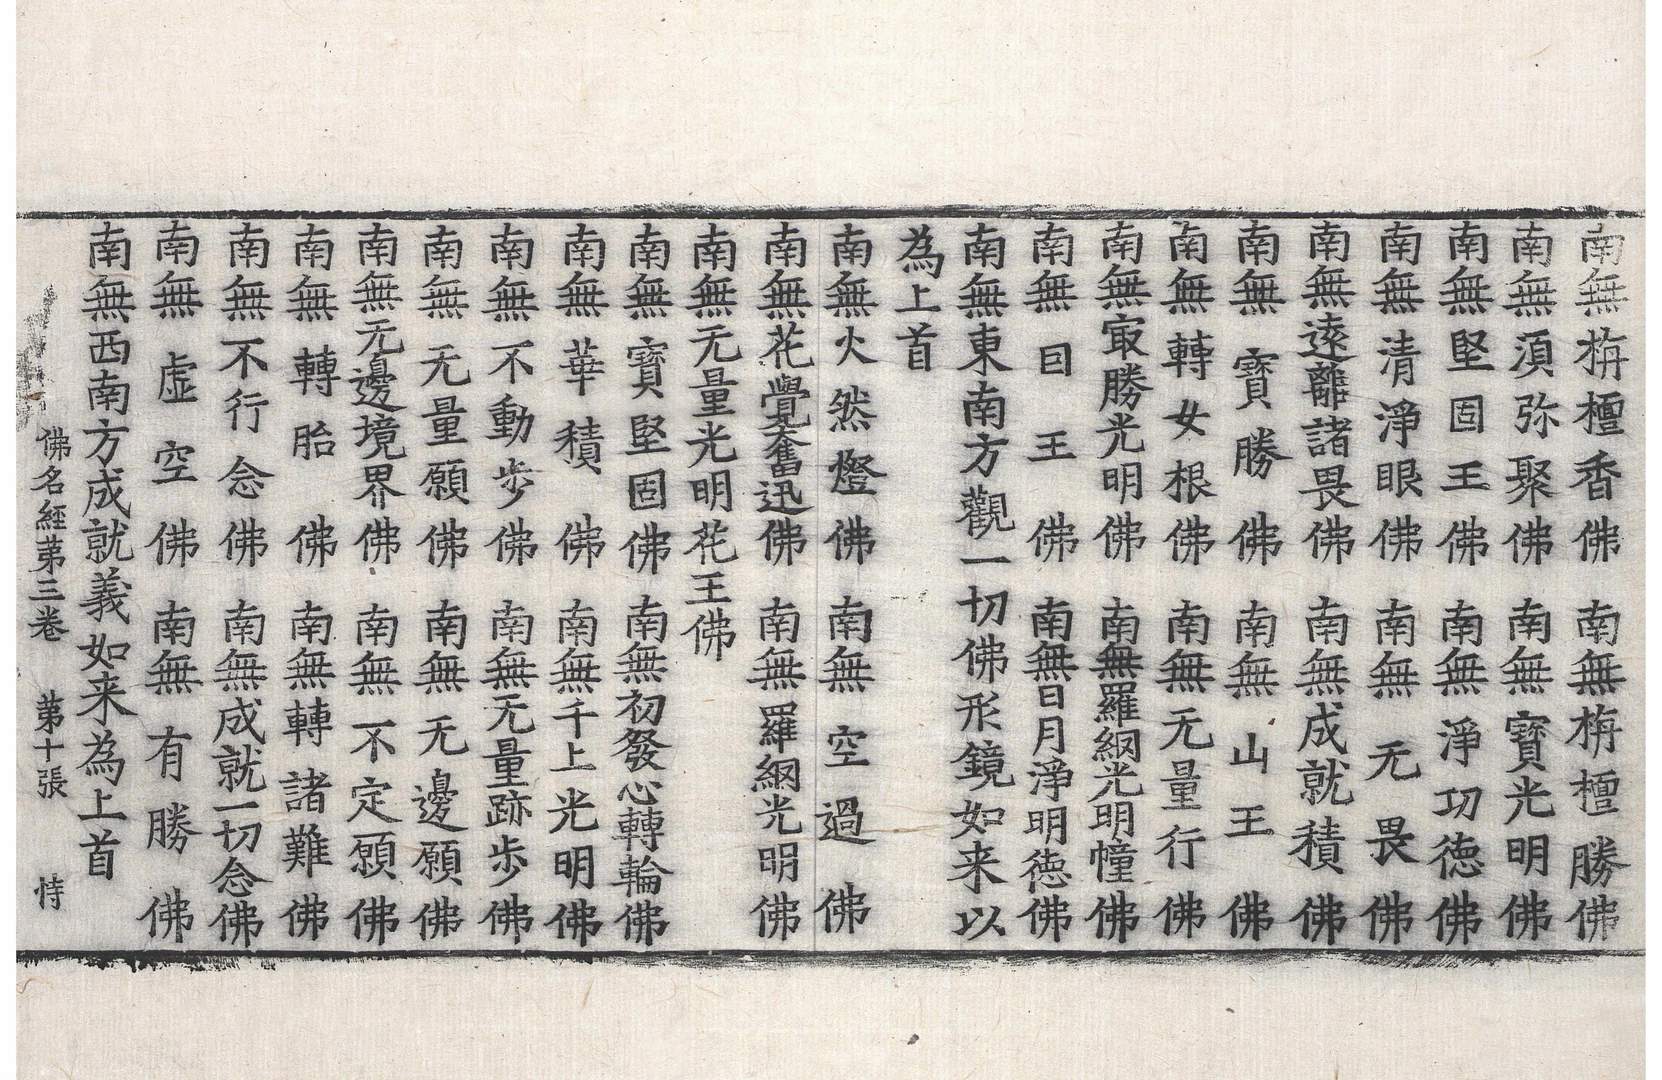 南無栴檀香佛 南無栴檀勝佛
南無須弥聚佛 南無寶光明佛
南無堅固王佛 南無淨功徳佛
南無清淨眼佛 南無无畏佛
南無遠離諸畏佛 南無成就積佛
南無寶勝佛 南無山王佛
南無轉女根佛 南無无量行佛
南無㝡勝光明佛 南無羅網光明幢佛
南無目王佛 南無日月淨明徳佛
南無東南方觀一切佛形鏡如来以
為上首
南無火然燈佛 南無空過佛
南無花覺奮迅佛 南無羅網光明佛
南無无量光明花王佛
南無寶堅固佛 南無初發心轉輪佛
南無華積佛 南無千上光明佛
南無不動步佛 南無无量跡步佛
南無无量願佛 南無无邊願佛
南無无邊境界佛 南無不定願佛
南無轉胎佛 南無轉諸難佛
南無不行念佛 南無成就一切念佛
南無虛空佛 南無有勝佛
南無西南方成就義如来為上首
佛名經第三卷 第十張 恃